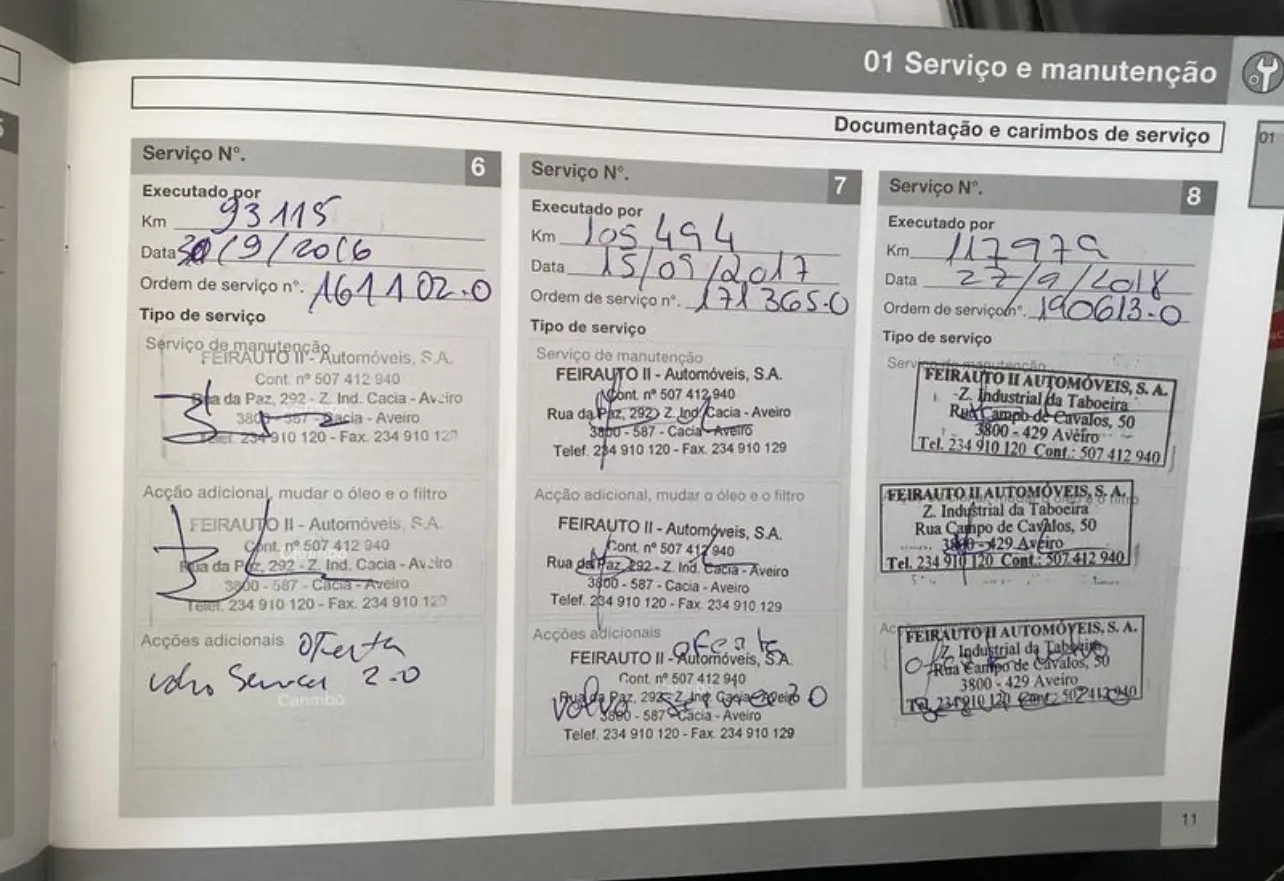 01 Serviço e manutenção
Documentação e carimbos de serviço
01
5
Serviço Nº. 6
Executado por
Km 93115
Data 30/9/2016
Ordem de serviço nº. 161102.0
Tipo de serviço
Serviço de manutenção
FEIRAUTO II - Automóveis, S.A.
Cont. nº 507 412 940
Rua da Paz, 292 - Z. Ind. Cacia - Aveiro
3800 - 587 - Cacia - Aveiro
Telef. 234 910 120 - Fax. 234 910 129
Acção adicional, mudar o óleo e o filtro
FEIRAUTO II - Automóveis, S.A.
Cont. nº 507 412 940
Carimbo
Rua da Paz, 292 - Z. Ind. Cacia - Aveiro
3800 - 587 - Cacia - Aveiro
Telef. 234 910 120 - Fax. 234 910 129
Acções adicionais oferta
volvo Service 2.0
Carimbo
Serviço Nº. 7
Executado por
Km 105494
Data 15/09/2017
Ordem de serviço nº. 171365.0
Tipo de serviço
Serviço de manutenção
FEIRAUTO II - Automóveis, S.A.
Cont. nº 507 412 940
Rua da Paz, 292 - Z. Ind. Cacia - Aveiro
3800 - 587 - Cacia - Aveiro
Telef. 234 910 120 - Fax. 234 910 129
Acção adicional, mudar o óleo e o filtro
FEIRAUTO II - Automóveis, S.A.
Cont. nº 507 412 940
Rua da Paz, 292 - Z. Ind. Cacia - Aveiro
3800 - 587 - Cacia - Aveiro
Telef. 234 910 120 - Fax. 234 910 129
Acções adicionais oferta
FEIRAUTO II - Automóveis, S.A.
Cont. nº 507 412 940
Rua da Paz, 292 - Z. Ind. Cacia - Aveiro
volvo service 2.0
3800 - 587 - Cacia - Aveiro
Telef. 234 910 120 - Fax. 234 910 129
Serviço Nº. 8
Executado por
Km 117979
Data 27/9/2018
Ordem de serviço nº. 190613.0
Tipo de serviço
Serviço de manutenção
FEIRAUTO II AUTOMÓVEIS, S. A.
Z. Industrial da Taboeira
Rua Campo de Cavalos, 50
3800 - 429 Aveiro
Tel. 234 910 120 Cont.: 507 412 940
FEIRAUTO II AUTOMÓVEIS, S. A.
Z. Industrial da Taboeira
Rua Campo de Cavalos, 50
3800 - 429 Aveiro
Tel. 234 910 120 Cont.: 507 412 940
FEIRAUTO II AUTOMÓVEIS, S. A.
Z. Industrial da Taboeira
Rua Campo de Cavalos, 50
3800 - 429 Aveiro
Tel. 234 910 120 Cont.: 507 412 940
11